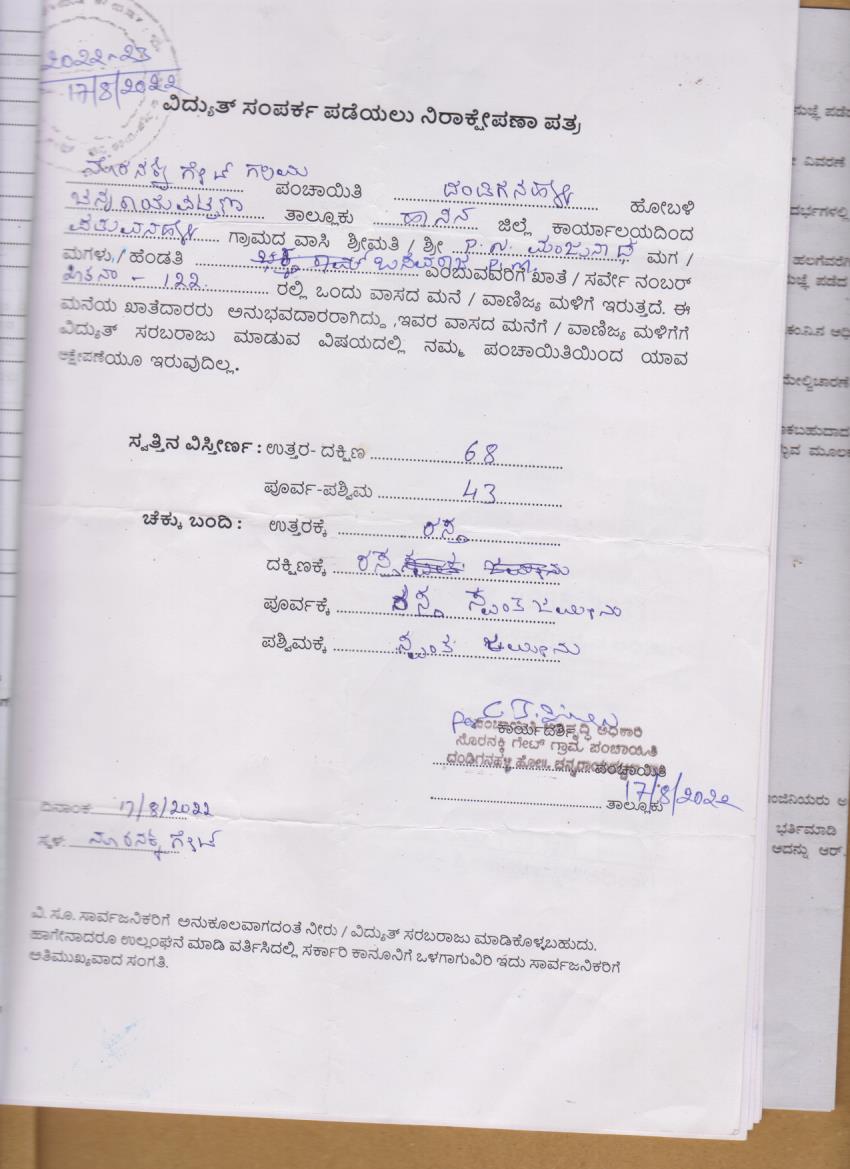 2022-23
17/8/2022
ವಿದ್ಯುತ್ ಸಂಪರ್ಕ ಪಡೆಯಲು ನಿರಾಕ್ಷೇಪಣಾ ಪತ್ರ
ಗೇಟ್ ಗ್ರಾಮ
ಪಂಚಾಯಿತಿ ದಂಡಿಗನಹಳ್ಳಿ ಹೋಬಳಿ
ಚನ್ನರಾಯಪಟ್ಟಣ ತಾಲ್ಲೂಕು ಹಾಸನ ಜಿಲ್ಲೆ ಕಾರ್ಯಾಲಯದಿಂದ
ಗ್ರಾಮದ ವಾಸಿ ಶ್ರೀಮತಿ / ಶ್ರೀ P.N. ಮಂಜುನಾಥ ಮಗ /
ಮಗಳು / ಹೆಂಡತಿ ಬಸವರಾಜ P.M. ಎಂಬುವವರಿಗೆ ಖಾತೆ / ಸರ್ವೇ ನಂಬರ್
- 122 ರಲ್ಲಿ ಒಂದು ವಾಸದ ಮನೆ / ವಾಣಿಜ್ಯ ಮಳಿಗೆ ಇರುತ್ತದೆ. ಈ
ಮನೆಯ ಖಾತೆದಾರರು ಅನುಭವದಾರರಾಗಿದ್ದು ,ಇವರ ವಾಸದ ಮನೆಗೆ / ವಾಣಿಜ್ಯ ಮಳಿಗೆಗೆ
ವಿದ್ಯುತ್ ಸರಬರಾಜು ಮಾಡುವ ವಿಷಯದಲ್ಲಿ ನಮ್ಮ ಪಂಚಾಯಿತಿಯಿಂದ ಯಾವ
ಆಕ್ಷೇಪಣೆಯೂ ಇರುವುದಿಲ್ಲ.
ಸ್ವತ್ತಿನ ವಿಸ್ತೀರ್ಣ : ಉತ್ತರ- ದಕ್ಷಿಣ 68
ಪೂರ್ವ-ಪಶ್ಚಿಮ 43
ಚೆಕ್ಕು ಬಂದಿ : ಉತ್ತರಕ್ಕೆ ರಸ್ತೆ
ದಕ್ಷಿಣಕ್ಕೆ ರಸ್ತೆ
ಪೂರ್ವಕ್ಕೆ ರಸ್ತೆ ಸ್ವಂತ ಜಮೀನು
ಪಶ್ಚಿಮಕ್ಕೆ ಸ್ವಂತ ಜಮೀನು
ಕಾರ್ಯದರ್ಶಿ
ಪಂಚಾಯಿತಿ ಅಭಿವೃದ್ಧಿ ಅಧಿಕಾರಿ
ನೊರನಕ್ಕಿ ಗೇಟ್ ಗ್ರಾಮ ಪಂಚಾಯಿತಿ
ಪಂಚಾಯಿತಿ
17/8/2022
ತಾಲ್ಲೂಕು
ದಿನಾಂಕ 17/8/2022
ಸ್ಥಳ: ನೊರನಕ್ಕಿ ಗೇಟ್
ವಿ. ಸೂ. ಸಾರ್ವಜನಿಕರಿಗೆ ಅನುಕೂಲವಾಗದಂತೆ ನೀರು / ವಿದ್ಯುತ್ ಸರಬರಾಜು ಮಾಡಿಕೊಳ್ಳಬಹುದು.
ಹಾಗೇನಾದರೂ ಉಲ್ಲಂಘನೆ ಮಾಡಿ ವರ್ತಿಸಿದಲ್ಲಿ ಸರ್ಕಾರಿ ಕಾನೂನಿಗೆ ಒಳಗಾಗುವಿರಿ ಇದು ಸಾರ್ವಜನಿಕರಿಗೆ
ಅತಿಮುಖ್ಯವಾದ ಸಂಗತಿ.